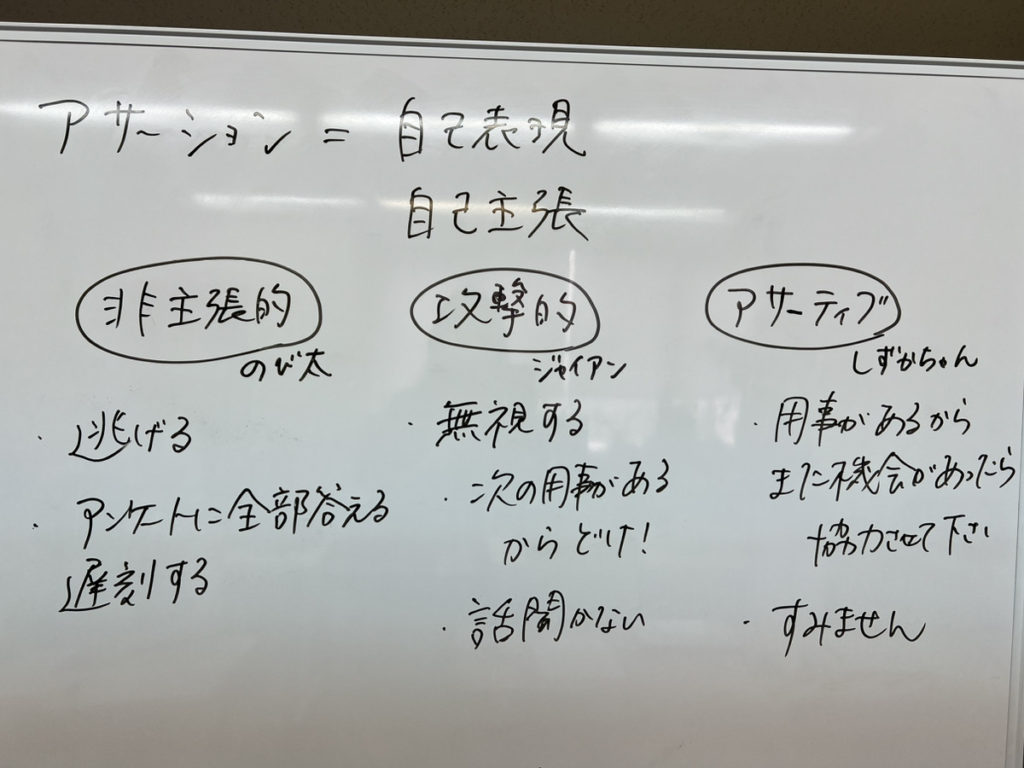 アサーション = 自己表現
自己主張
非主張的
のび太
・逃げる
・アンケートに全部答える
遅刻する
攻撃的
ジャイアン
・無視する
・次の用事がある
からどけ!
・話聞かない
アサーティブ
しずかちゃん
・用事があるから
また機会があったら
協力させて下さい
・すみません